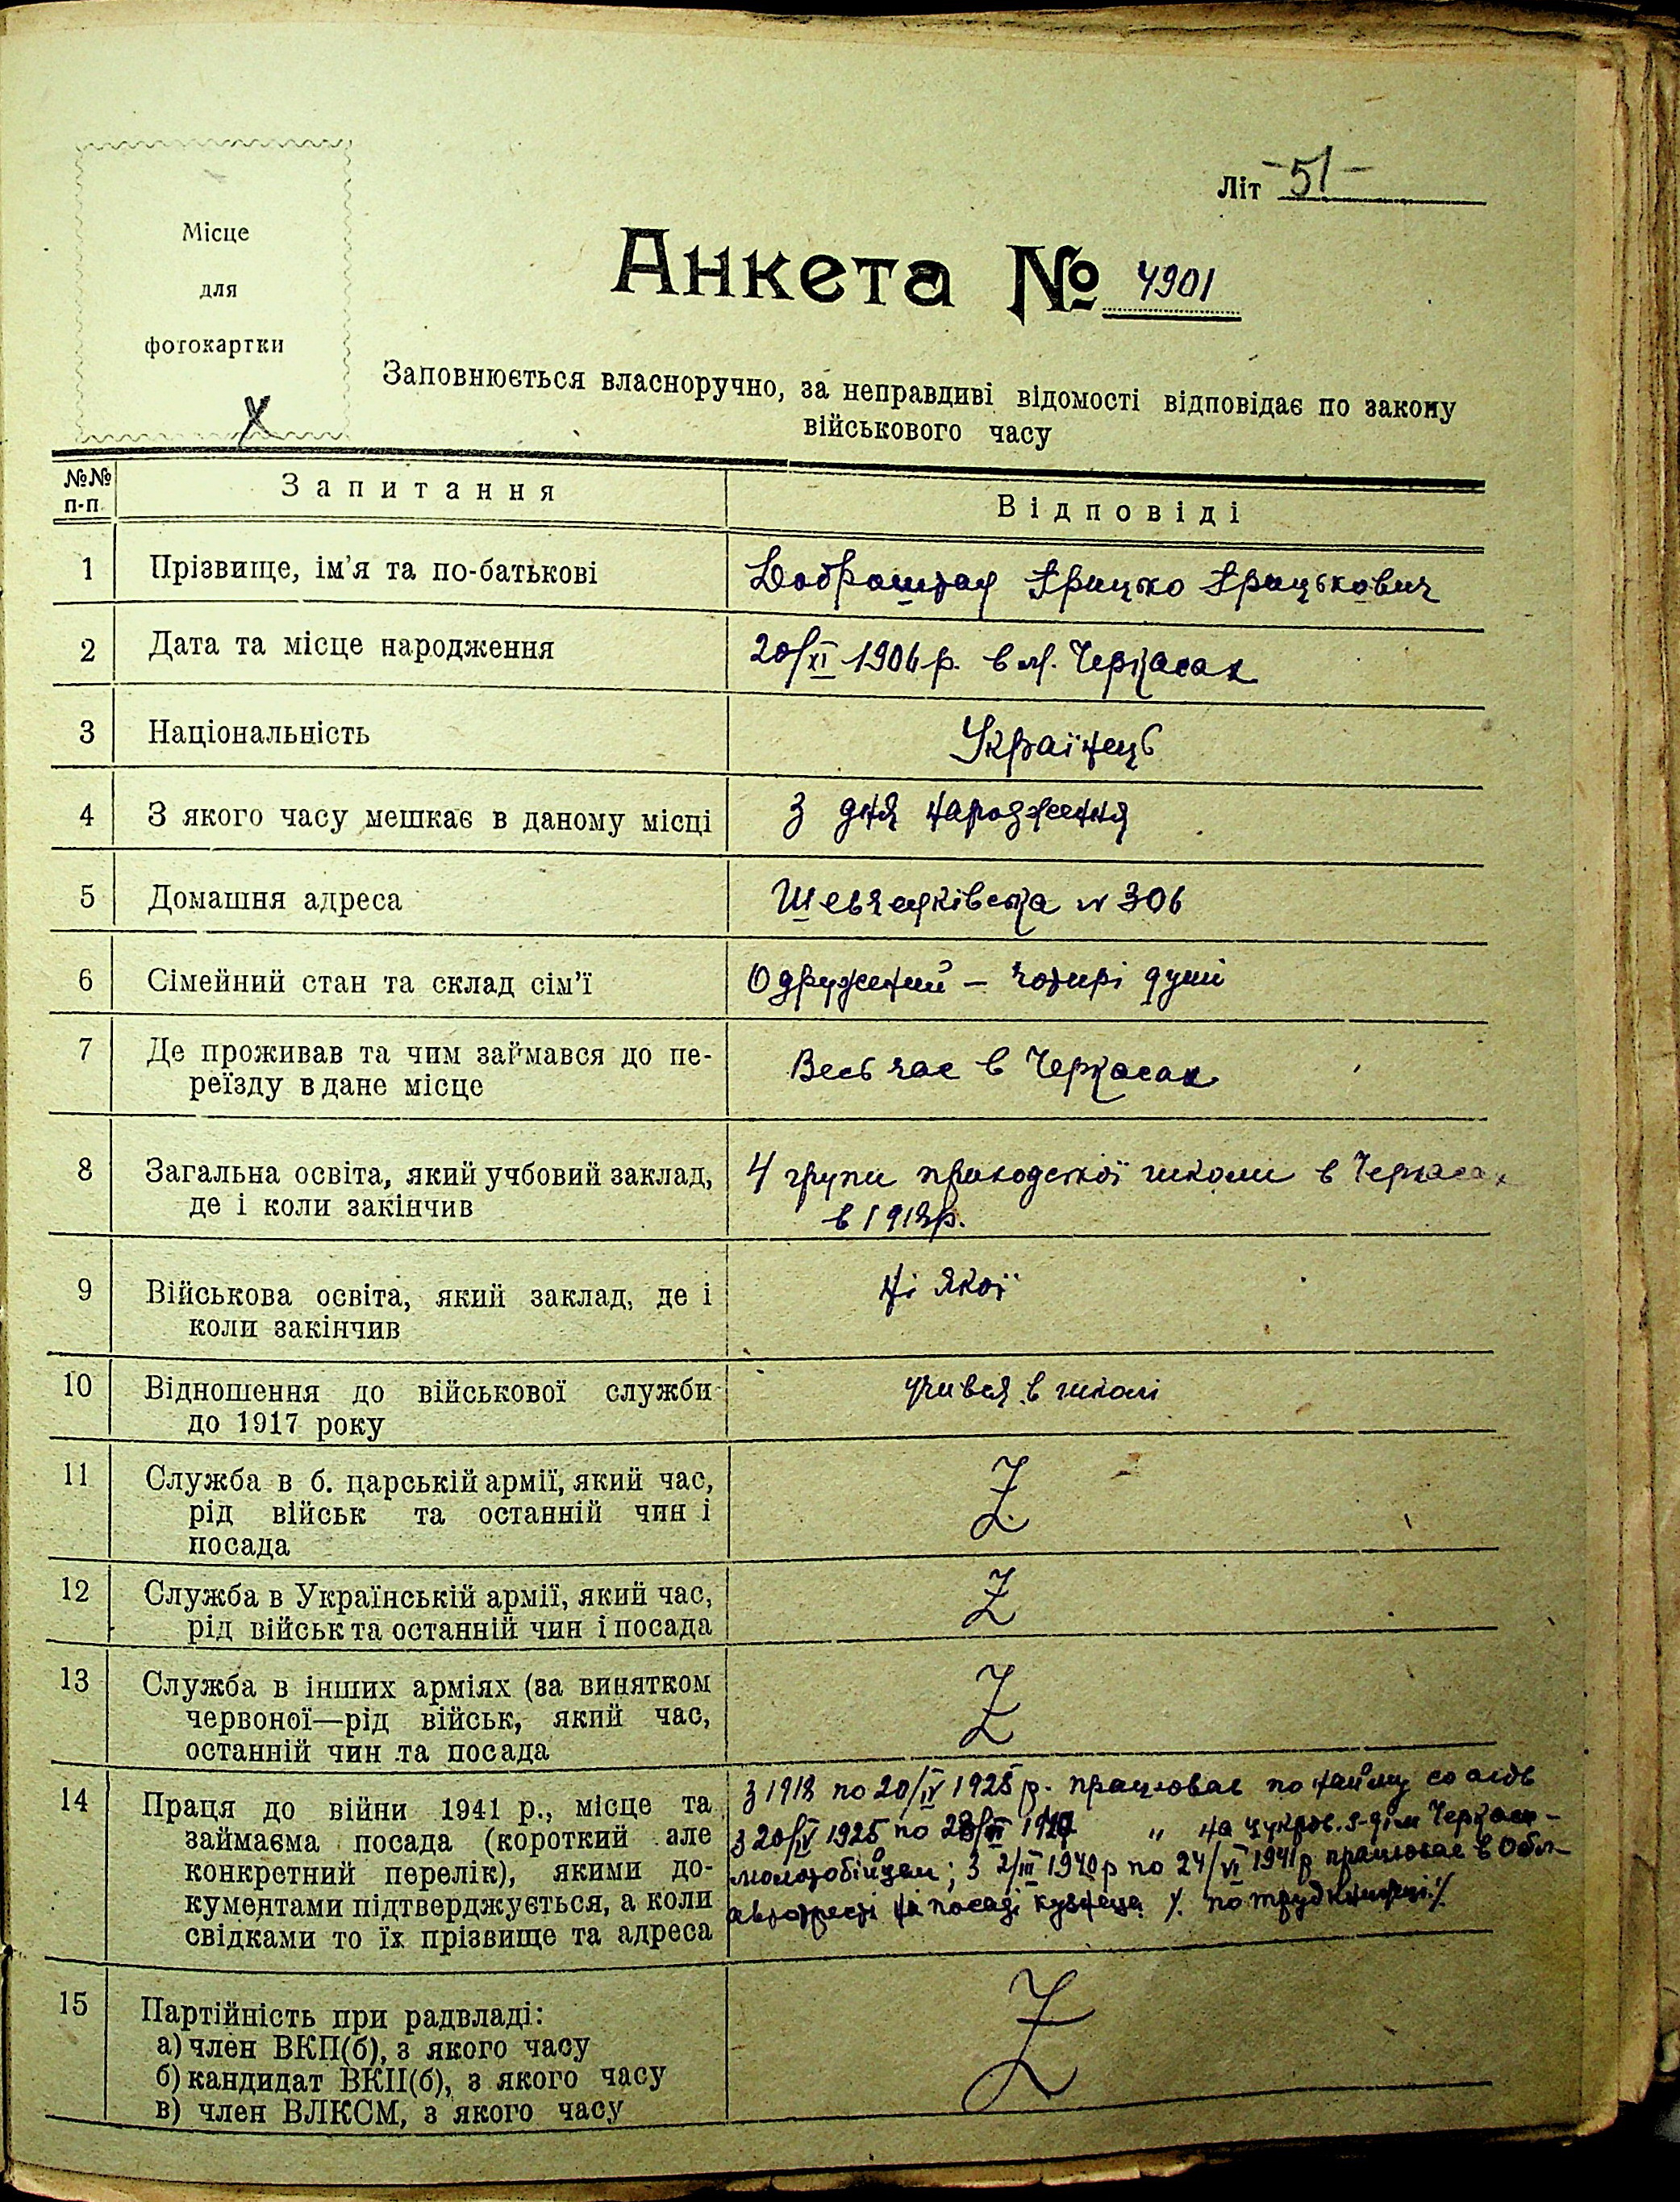 Місце
для
фотокартки
Літ -51-
Анкета № 4901
Заповнюється власноручно, за неправдиві відомості відповідає по закону
військового часу
№№ п-п. Запитання Відповіді
1 Прізвище, ім'я та по-батькові Грицько Грицькович
2 Дата та місце народження 20/XI 1906 р. в м. Черкасах
3 Національність Українець
4 З якого часу мешкає в даному місці З дня народження
5 Домашня адреса Шевченківська № 306
6 Сімейний стан та склад сім'ї Одружений – чотирі душі
7 Де проживав та чим займався до пе-
реїзду в дане місце Весь час в Черкасах
8 Загальна освіта, який учбовий заклад, 4 групи приходської школи в Черкасах
де і коли закінчив в 1918р.
9 Військова освіта, який заклад, де і Ні якої
коли закінчив
10 Відношення до військової служби учився в школі
до 1917 року
11 Служба в б. царській армії, який час, Z
рід військ та останній чин і
посада
12 Служба в Українській армії, який час, Z
рід військ та останній чин і посада
13 Служба в інших арміях (за винятком Z
червоної—рід військ, який час,
останній чин та посада
14 Праця до війни 1941 р., місце та З 1918 по 20/IV 1925 р. працював по найму
займаєма посада (короткий але з 20/IV 1925 по " на цукров. з-ді м Черкаси –
конкретний перелік), якими до- молотобійцем; З 2/III 1940 р по 24/VI 1941 р працював в Обл-
кументами підтверджується, а коли автотресті на посаді кузнеца /. по трудкнижці /.
свідками то їх прізвище та адреса
15 Партійність при радвладі: Z
а) член ВКП(б), з якого часу
б) кандидат ВКП(б), з якого часу
в) член ВЛКСМ, з якого часу